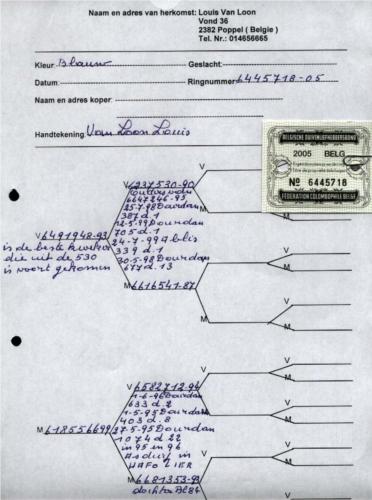 Naam en adres van herkomst: Louis Van Loon
Vond 36
2382 Poppel ( Belgie )
Tel. Nr.: 014656665
Kleur Blauw Geslacht:
Datum: Ringnummer 6445718-05
Naam en adres koper:
Handtekening Van Loon Louis
BELGISCHE DUIVENLIEFHEBBERSBOND
2005 BELG
№ 6445718
FEDERATION COLOMBOPHILE BELGE
V
V 6237530-90
M
6647246-95
25-7-98 Dourdan
387 d. 1
12-5-99 Dourdan
705 d. 1
24-7-99 Ablis
339 d. 1
30-5-98 Dourdan
677 d. 13
V 6491948-93
is de beste kweker
die uit de 530
is voort gekomen
V
M 6616541-87
M
V
M
V
V 6582712-94
1-6-96 Dourdan
633 d. 2
1-5-95 Dourdan
403 d. 8
M 618556699
27-5-95 Dourdan
1074 d. 22
in 95 en 96
Asduif in
HAFO LIER
V
M
V
M 6681353-93
dochter
M